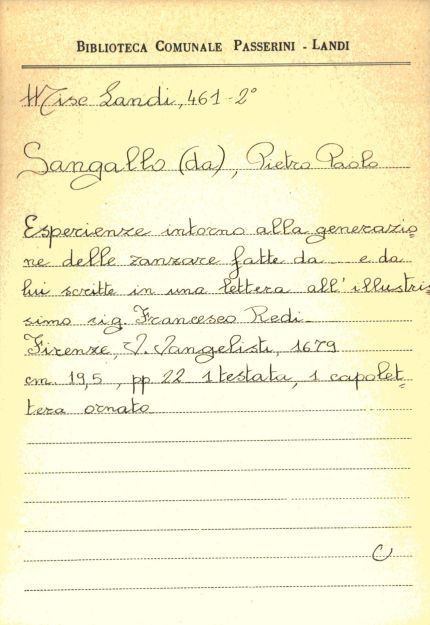 BIBLIOTECA COMUNALE PASSERINI - LANDI
Misc Landi, 461-2°
Sangallo (da), Pietro Paolo
Esperienze intorno alla generazio=
ne delle zanzare fatte da ... e da
lui scritte in una lettera all'illustris
simo sig. Francesco Redi.
Firenze, V. Vangelisti, 1679
cm. 19,5, pp 22 1 testata, 1 capolet=
tera ornato
C